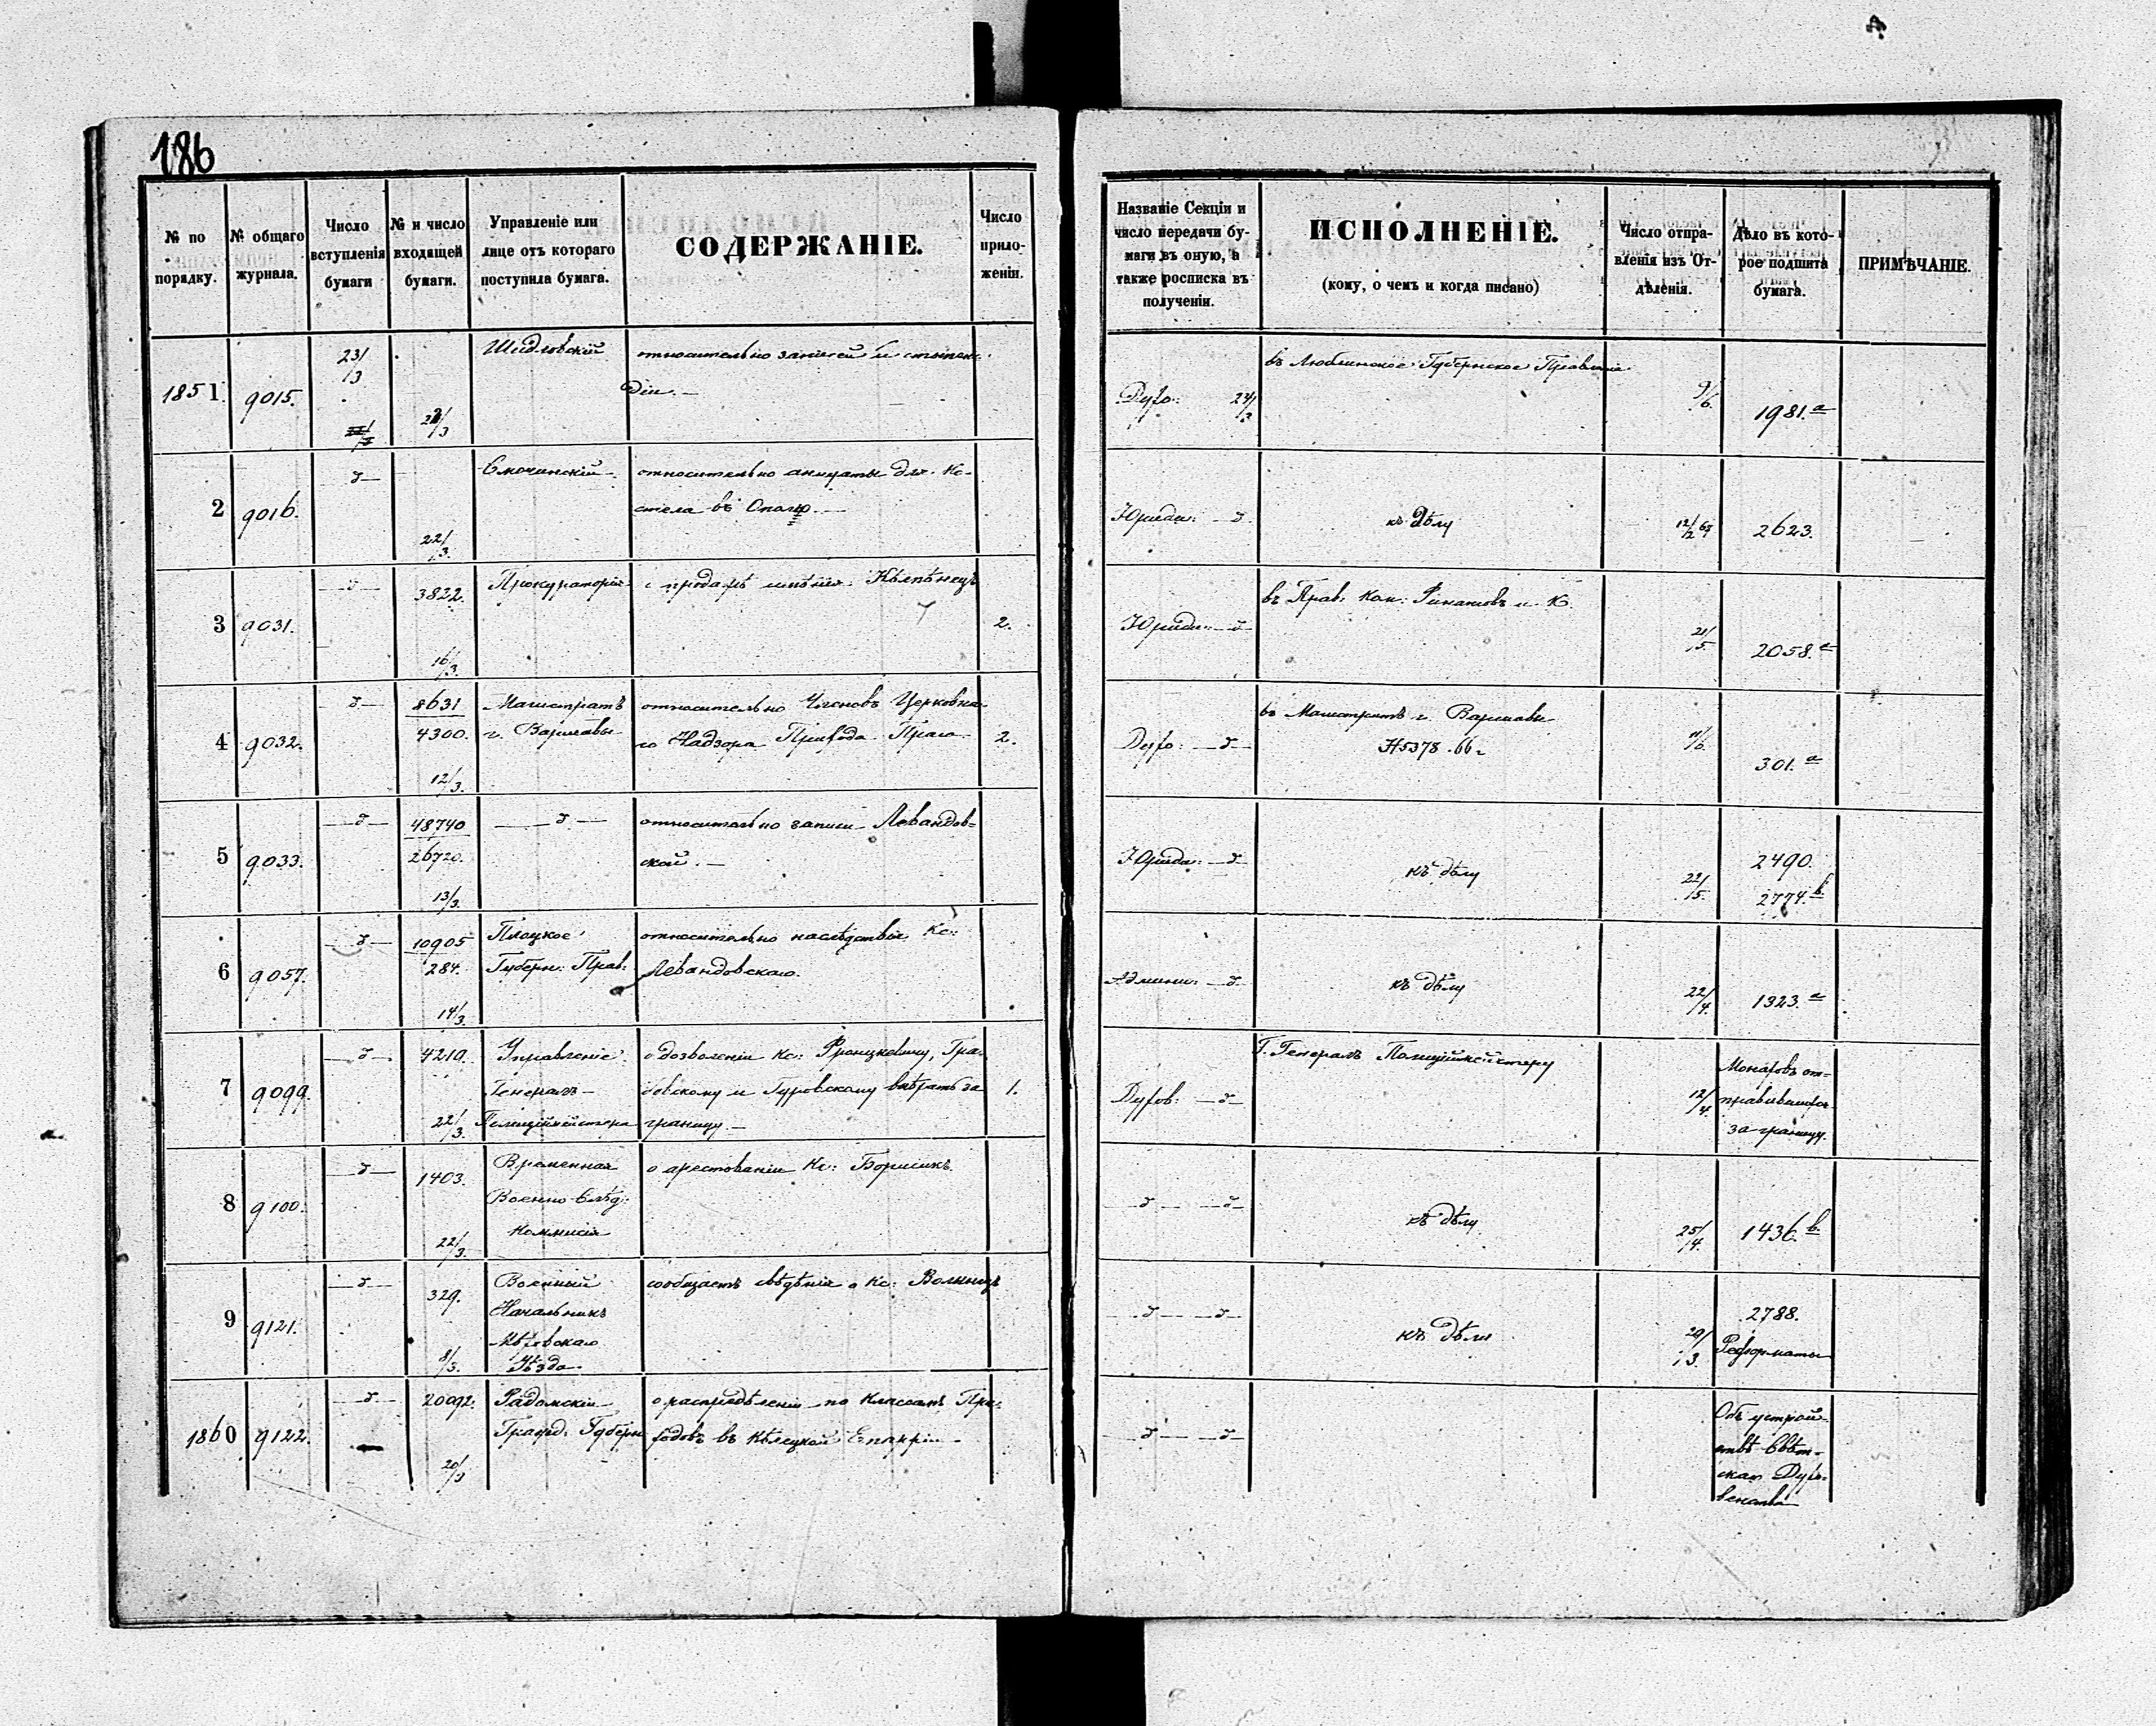 186
№ по порядку.
№ общаго журнала.
Число вступленія бумаги
№ и число входящей бумаги.
Управленіе или лице отъ котораго поступила бумага.
СОДЕРЖАНІЕ.
Число приложеніи.
Названіе Секціи и число передачи бумаги въ оную, а также росписка въ полученіи.
ИСПОЛНЕНІЕ.
(кому, о чемъ и когда писано)
Число отправленія изъ Отдѣленія.
Дѣло въ которое подшита бумага.
ПРИМѢЧАНІЕ.
1851. 9015. 23/3 Шидловскій относительно записей и стипен-
діи.—
Духо: 24/3 въ Люблинское Губернское Правленіе 9/6. 1981.а
2 9016. д— 22/3. относительно аннуаты для Ко-
стела въ Ополю.—
Юриди: — д. къ Дѣлу 2623.
3 9031. —д— 3822. 16/3. Прокураторія о продажѣ имѣнія 2.
Юриди: —д— въ Прав: Ком: Финансовъ 21/5. 2058.
4 9032. д— 8631
4300. 12/3. Магистратъ
г. Варшавы
относительно Членовъ Церковна-
го Надзора Прихода Прага 2.
Духо: —д— въ Магистратъ г. Варшавы
№5378.66г 11/6. 301.а
5 9033. —д— 48740
26720. 13/3. —д—
относительно записи Левандов-
ской.—
Юриди: —д— къ дѣлу 22/5. 2490.
2774.b
6 9057. —д— 10905
284. 14/3. Плоцкое
Губерн: Прав:
относительно наслѣдствія Кс:
Левандовскаго.
Админи: —д— къ дѣлу 22/4. 1323.а
7 9099. —д— 4219. 22/3. Управленіе
Генералъ—
Полиціймейстера
о дозволеніи Кс: Францкевичу, Гра-
бовскому и Гуровскому выѣхать за
границу.— 1.
Духов: —д— Г. Генералъ Полиціймейстеру 12/4. Монаховъ от-
правившихся
за границу.
8 9100. д— 1403. 22/3. Временная
Военно-Слѣд:
Коммисія
о арестованіи Кс: Борисикъ.
д— —д— къ дѣлу 25/4. 1436.b.
9 9121. —д— 329. 8/3. Военный
Начальникъ
Мѣховскаго
Уѣзда
сообщаетъ свѣдѣнія о Кс:
д— —д— къ дѣлу 29/3. 2788.
Реформаты
1860 9122. —д— 20092. 20/3 Радомскій
Гражд. Губерн
о распредѣленіи по классамъ При-
ходовъ въ Кѣлецкой Епархіи—
д— —д— Объ устрой-
ствѣ Свѣт-
скаго Духо-
венства